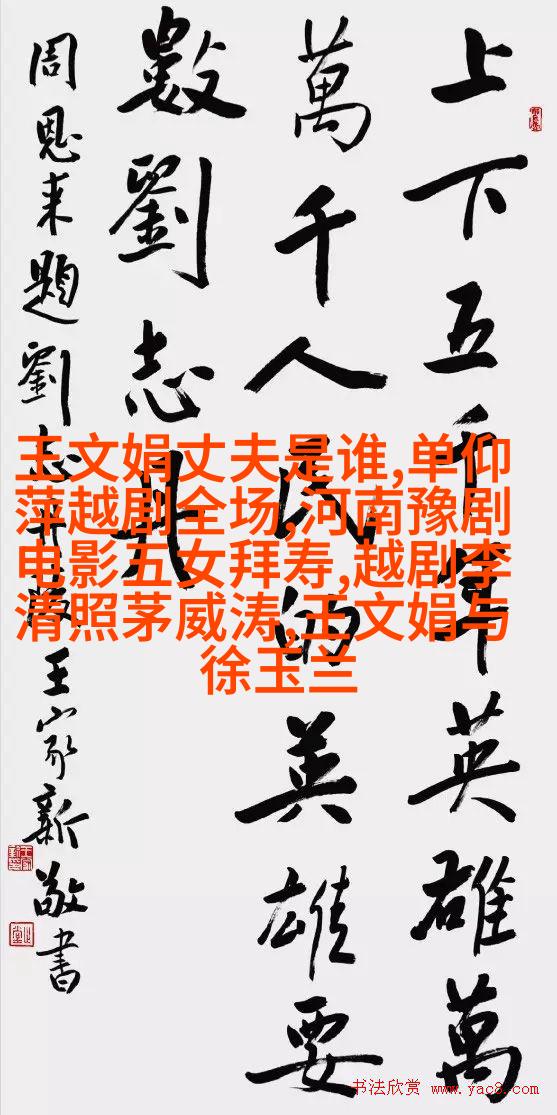 上下五千年英雄萬
萬千人民的英雄要
數劉志丹
周恩来題劉志丹 王家新敬書
王文娟丈夫是谁,单仰
萍越剧全场,河南豫剧
电影五女拜寿,越剧李
清照茅威涛,王文娟与
徐玉兰
书法欣赏 www.yac8.com